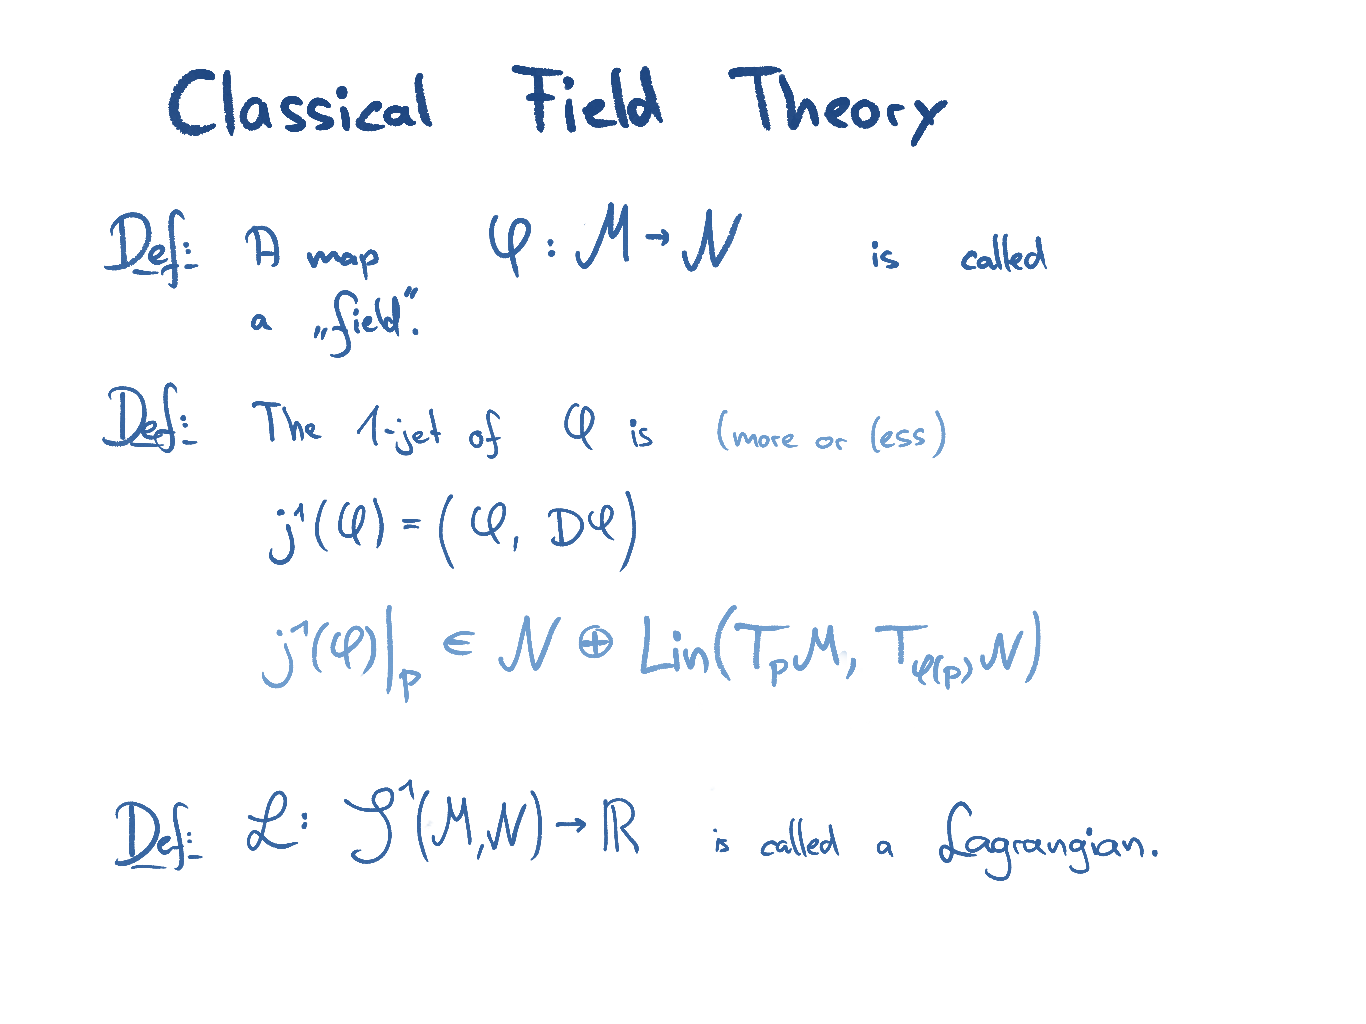 Classical Field Theory
Def: A map φ : M → N is called
a „field".
Def: The 1-jet of φ is (more or less)
j¹(φ) = (φ, Dφ)
j¹(φ)|ₚ ∈ N ⊕ Lin(TₚM, T_φ(p) N)
Def: ℒ: 𝒥¹(M,N) → ℝ is called a Lagrangian.